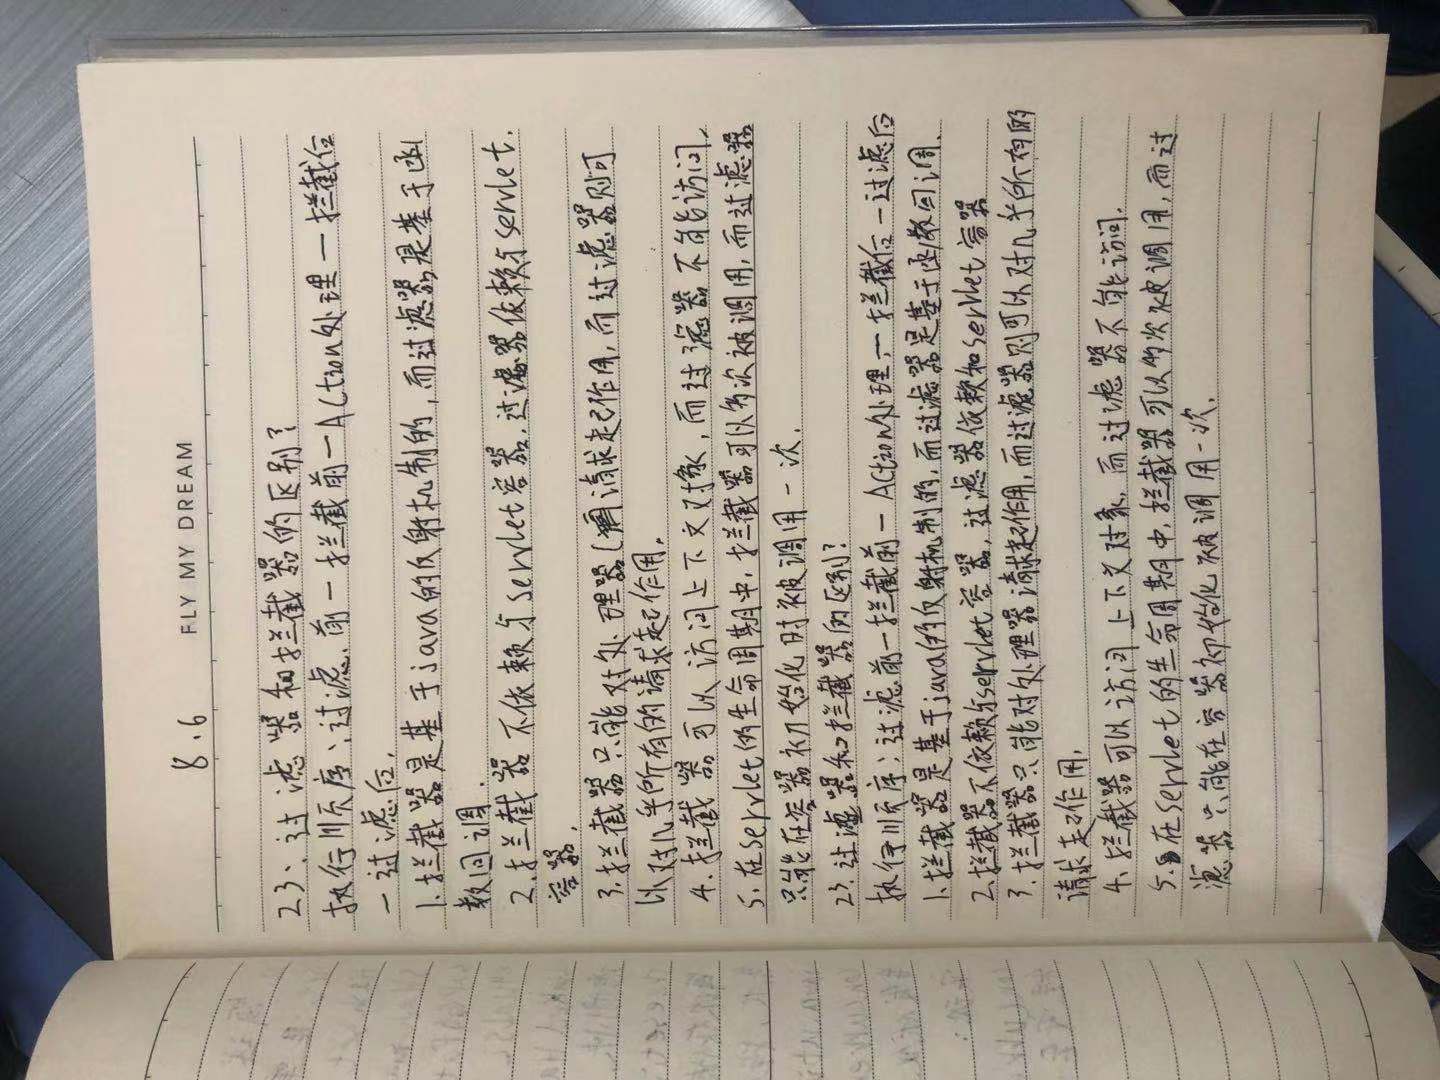 8.6
FLY MY DREAM
23、过滤器和拦截器的区别?
执行顺序:过滤前一拦截前一Action处理一拦截后
一过滤后.
1.拦截器是基于java的反射机制的,而过滤器是基于函
数回调.
2.拦截器不依赖与servlet容器,过滤器依赖与servlet.
容器.
3.拦截器只能对处理器(请求起作用,而过滤器则可
以对几乎所有的请求起作用.
4.拦截器可以访问上下文对象,而过滤器不能访问.
5.在servlet的生命周期中,拦截器可以多次被调用,而过滤器
只能在容器初始化时被调用一次.
23.过滤器和拦截器的区别?
执行顺序:过滤前一拦截前一Action处理一拦截后一过滤后
1.拦截器是基于java的反射机制的,而过滤器是基于函数回调.
2.拦截器不依赖与servlet容器,过滤器依赖和servlet容器
3.拦截器只能对处理器请求起作用,而过滤器则可以对几乎所有的
请求起作用.
4.拦截器可以访问上下文对象,而过滤器不能访问.
5.在servlet的生命周期中,拦截器可以多次被调用,而过
滤器只能在容器初始化被调用一次.